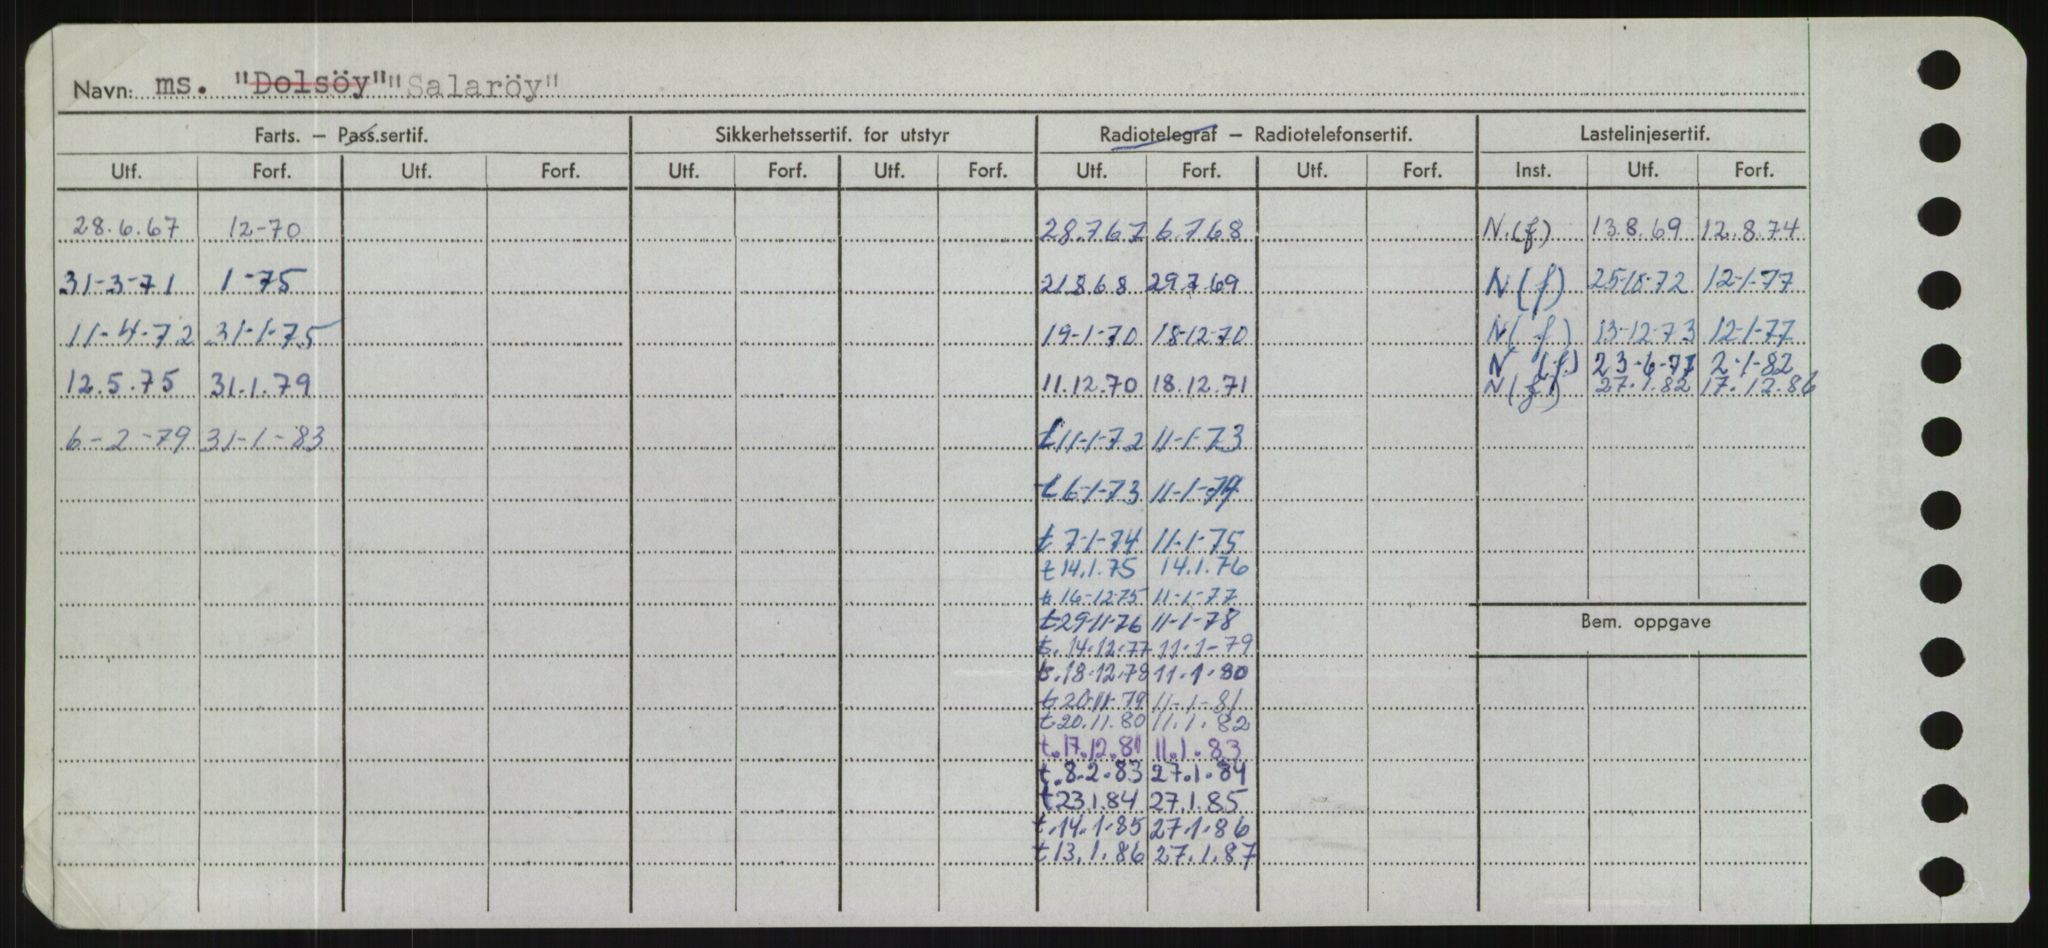 Navn: ms. "Dolsöy" "Salaröy"
Farts. — Pass.sertif. Sikkerhetssertif. for utstyr Radiotelegraf — Radiotelefonsertif. Lastelinjesertif.
Utf. Forf. Utf. Forf. Utf. Forf. Utf. Forf. Utf. Forf. Utf. Forf. Inst. Utf. Forf.
28.6.67 12-70 28.7.67 6.7.68 N.(f) 13.8.69 12.8.74
31-3-71 1-75 21.8.68 29.7.69 N(f) 12-1-77
11-4-72 31-1-75 19-1-70 18-12-70 N(f) 13-12-73 12-1-77
N (f.) 23-6-77 2-1-82
12.5.75 31.1.79 11.12.70 18.12.71 N(f) 27.1.82 17.12.86
6-2-79 31-1-83 t11-1-72 11-1-73
t6-1-73 11-1-74
t 7-1-74 11-1-75
t 14.1.75 14.1.76
t. 16-12-75 11-1-77
t29-11-76 11-1-78
t. 14.12.77 11.1-79
t. 18.12.78 11.1.80
t 20-11-79 11-1-81
t20.11.80 11.1.82
Bem. oppgave
t.17.12.81 11.1.83
t.8.2.83 27.1.84
t23.1.84 27.1.85
t.14.1.85 27.1.86
t13.1.86 27.1.87